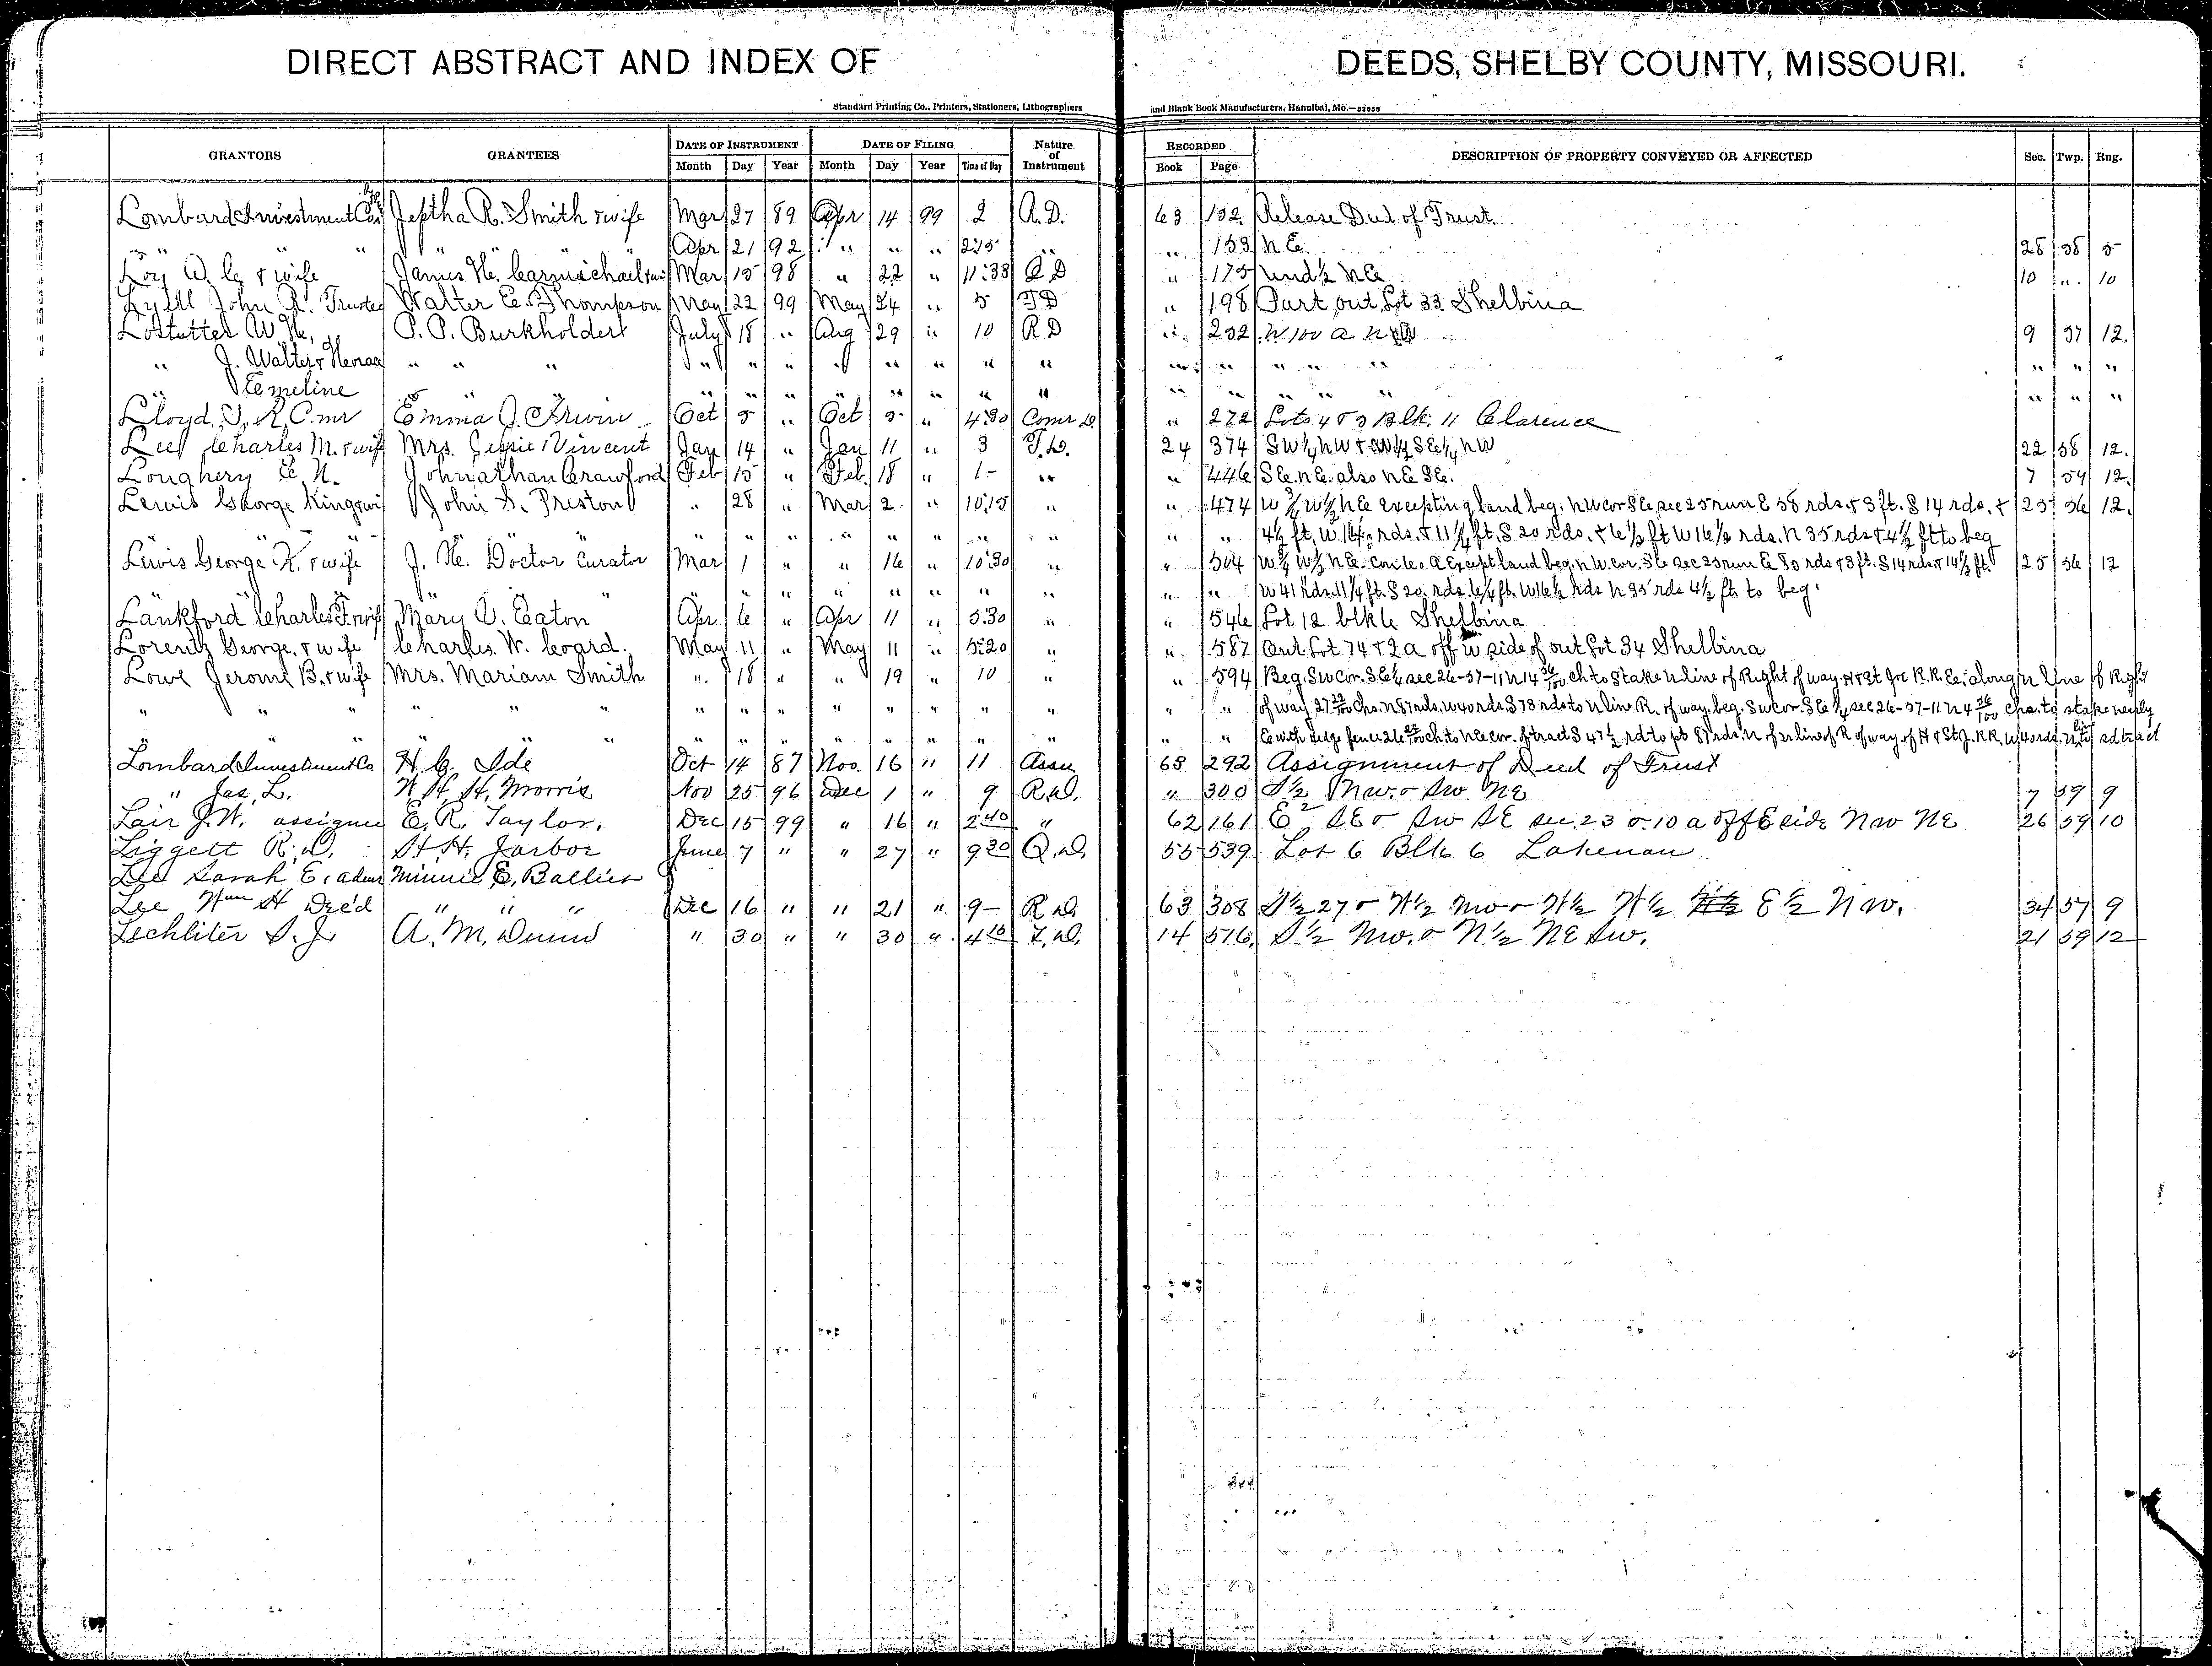 DIRECT ABSTRACT AND INDEX OF DEEDS, SHELBY COUNTY, MISSOURI.
Standard Printing Co., Printers, Stationers, Lithographers and Blank Book Manufacturers, Hannibal, Mo.
GRANTORS GRANTEES DATE OF INSTRUMENT DATE OF FILING Nature of Instrument RECORDED DESCRIPTION OF PROPERTY CONVEYED OR AFFECTED Sec. Twp. Rng.
Month Day Year Month Day Year Time of Day Book Page
Lombard Investment Co. Jeptha R. Smith & wife Mar 27 89 Apr 14 99 2 R.D. 63 152 Release Deed of Trust
" " " " " " Apr 21 92 " " " 2:15 " " 153 N E.
Loy A. C. & wife James H. Carmichael & wife Mar 15 98 " 22 " 11:33 Q D " 175 und ½ N E 10 " 10
John R. Trustee Walter E. Thompson May 22 99 May 24 " 5 T D " 198 Part out Lot 33 Shelbina
Lostutter W. H. P. P. Burkholder July 18 " Aug 29 " 10 R D " 232 W 100 a 9 57 12.
" J. Walter & Horace " " " " " " " " " " " " " " " " " " "
" Emeline " " " " " " " " " " " " " " " " " " "
Lloyd. J. R. Cmr Emma J. Irwin Oct 5 " Oct 5 " 4:30 Comr D. " 272 Lots 4 & 3 Blk. 11 Clarence
Lee Charles M. & wife Mrs. Jessie Vincent Jan 14 " Jan 11 " 3 T.D. 24 374 SW ¼ NW & W ½ SE ¼ NW 22 58 12.
Loughery E. N. Johnathan Crawford Feb 15 " Feb. 18 " 1- " " 446 SE. N E. also N E SE. 7 59 12.
Lewis George King & wife John S. Preston " 28 " Mar 2 " 10:15 " " 474 W ¾ W ½ N E excepting land beg. NW cor SE sec 25 run E 58 rds. & 3 ft. S 14 rds. & 25 56 12.
" " " " " " " " " " " " " " 4½ ft, W. rds. & 11 ¼ ft, S 20 rds. & 6 ½ ft W 16 ½ rds. N 35 rds & 4 ½ ft to beg
Lewis George K. & wife J. H. Doctor Curator Mar 1 " " 16 " 10:30 " " 504 W ¾ W ½ N E. Except land beg. N W. cor. SE sec 25 run E rds & 3 ft. S 14 rds & 14 ½ ft. 25 56 12
" " " " " " " " " " " " " W 41 rds. 11 ¼ ft. S 20 rds. 6 ½ ft. W 16 ½ rds N 35 rds 4 ½ ft. to beg.
Lankford Charles F. & wife Mary V. Eaton Apr 6 " Apr 11 " 5:30 " " 546 Lot 12 blk 6 Shelbina
Lorentz George. & wife Charles. W. Coard. May 11 " May 11 " 5:20 " " 587 Out Lot 74 & 2 a off W side of out Lot 34 Shelbina
Lowe Jerome B. & wife Mrs. Mariam Smith " 18 " " 19 " 10 " " 594 Beg. SW cor. SE ¼ sec 26-57-11 N 14 ch to stake N line of Right of way H & St Joe R.R. E. along N line of Right
" " " " " " " " " " " " " " " of way 27 chs. N 87 rds. W 40 rds. S 78 rds to N line R. of way. beg. SW cor. SE ¼ sec 26-57-11 N 4 chs. to stake nearly
" " " " " " " " " " " " " " " E with hedge fence 26 ch to N E cor. of tract S 47 ½ rd to pt 87 rds. N of N line of R of way of H & St J. RR. W 40 rds.
Lombard Investment Co H. C. Ide Oct 14 87 Nov. 16 " 11 Assn. 63 292 Assignment of Deed of Trust
" Jas. L. W. H. H. Morris Nov 25 96 Dec 1 " 9 R.D. " 300 S½ NW. & SW NE 7 59 9
Lair J. W. assignee E. R. Taylor. Dec 15 99 " 16 " 2:40 " 62 161 E² SE & SW SE sec. 23 & 10 a off E side NW NE 26 59 10
Liggett R. D. H. H. Jarboe June 7 " " 27 " 9:20 Q.D. 55 539 Lot 6 Blk 6 Lakenan
Lee Sarah E. admr Minnie E. Balliett
Lee Wm H Dec'd " " " Dec 16 " " 21 " 9- R D. 63 308 S½ 27 & W½ NW & W½ W½ E½ NW. 34 57 9
Lechliter S. J. A. M. Dunn " 30 " " 30 " 4:10 T.D. 14 576 S½ NW. & N½ NE SW. 21 59 12